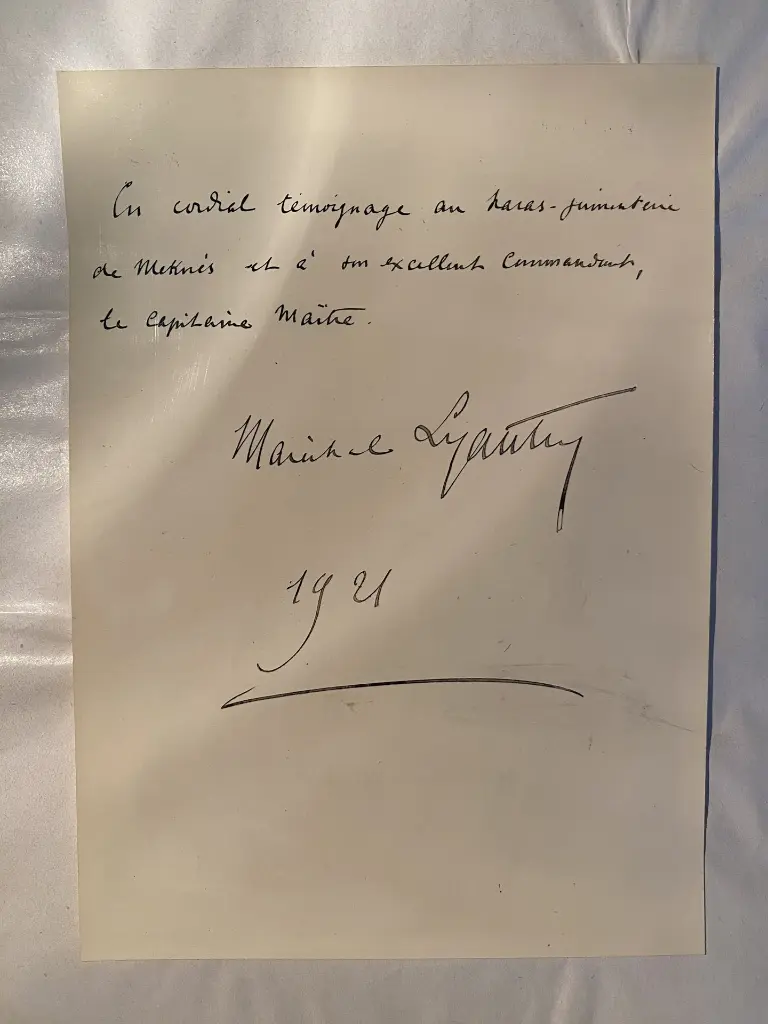 En cordial témoignage au haras-jumenterie
de Meknès et à son excellent Commandant,
le Capitaine Maître.
Maréchal Lyautey
1921